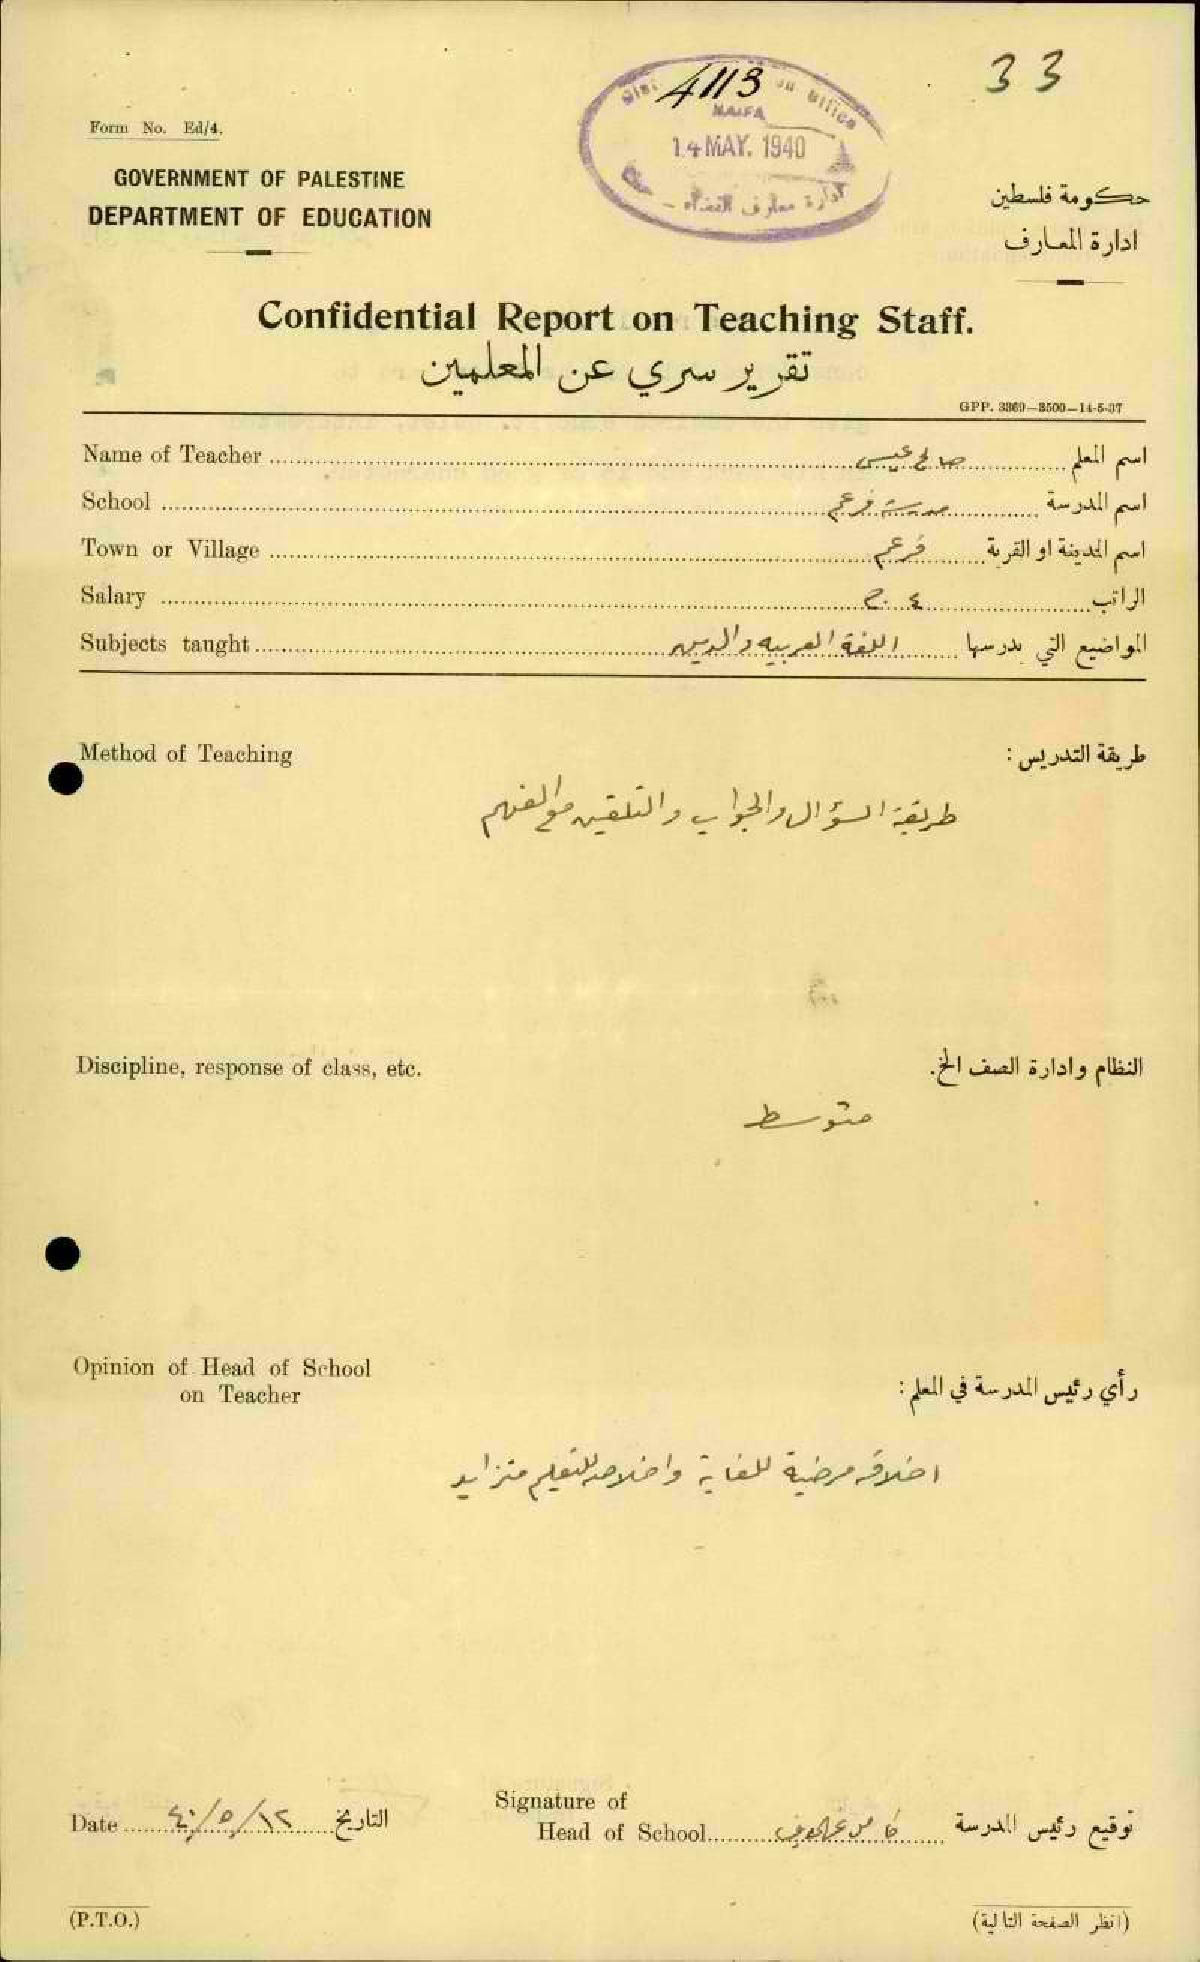 33
4113
HAIFA
14 MAY. 1940
ادارة معارف القضاء
Form No. Ed/4.
GOVERNMENT OF PALESTINE
DEPARTMENT OF EDUCATION
حكومة فلسطين
ادارة المعارف
Confidential Report on Teaching Staff.
تقرير سري عن المعلمين
GPP. 3369—3500—14-5-37
Name of Teacher صالح عيسى اسم المعلم
School مدرسة فرعم اسم المدرسة
Town or Village فرعم اسم المدينة او القرية
Salary ٤ ج الراتب
Subjects taught اللغة العربيه والدين المواضيع التي يدرسها
Method of Teaching طريقة التدريس:
طريقة السؤال والجواب والتلقين مع الفهم
Discipline, response of class, etc. النظام وادارة الصف الخ.
متوسط
Opinion of Head of School
on Teacher
رأي رئيس المدرسة في المعلم:
اخلاقه مرضية للغاية واخلاصه للتعليم متزايد
Signature of
Date ٤٠/٥/١٢ التاريخ Head of School كامل توقيع رئيس المدرسة
(P.T.O.) (انظر الصفحة التالية)